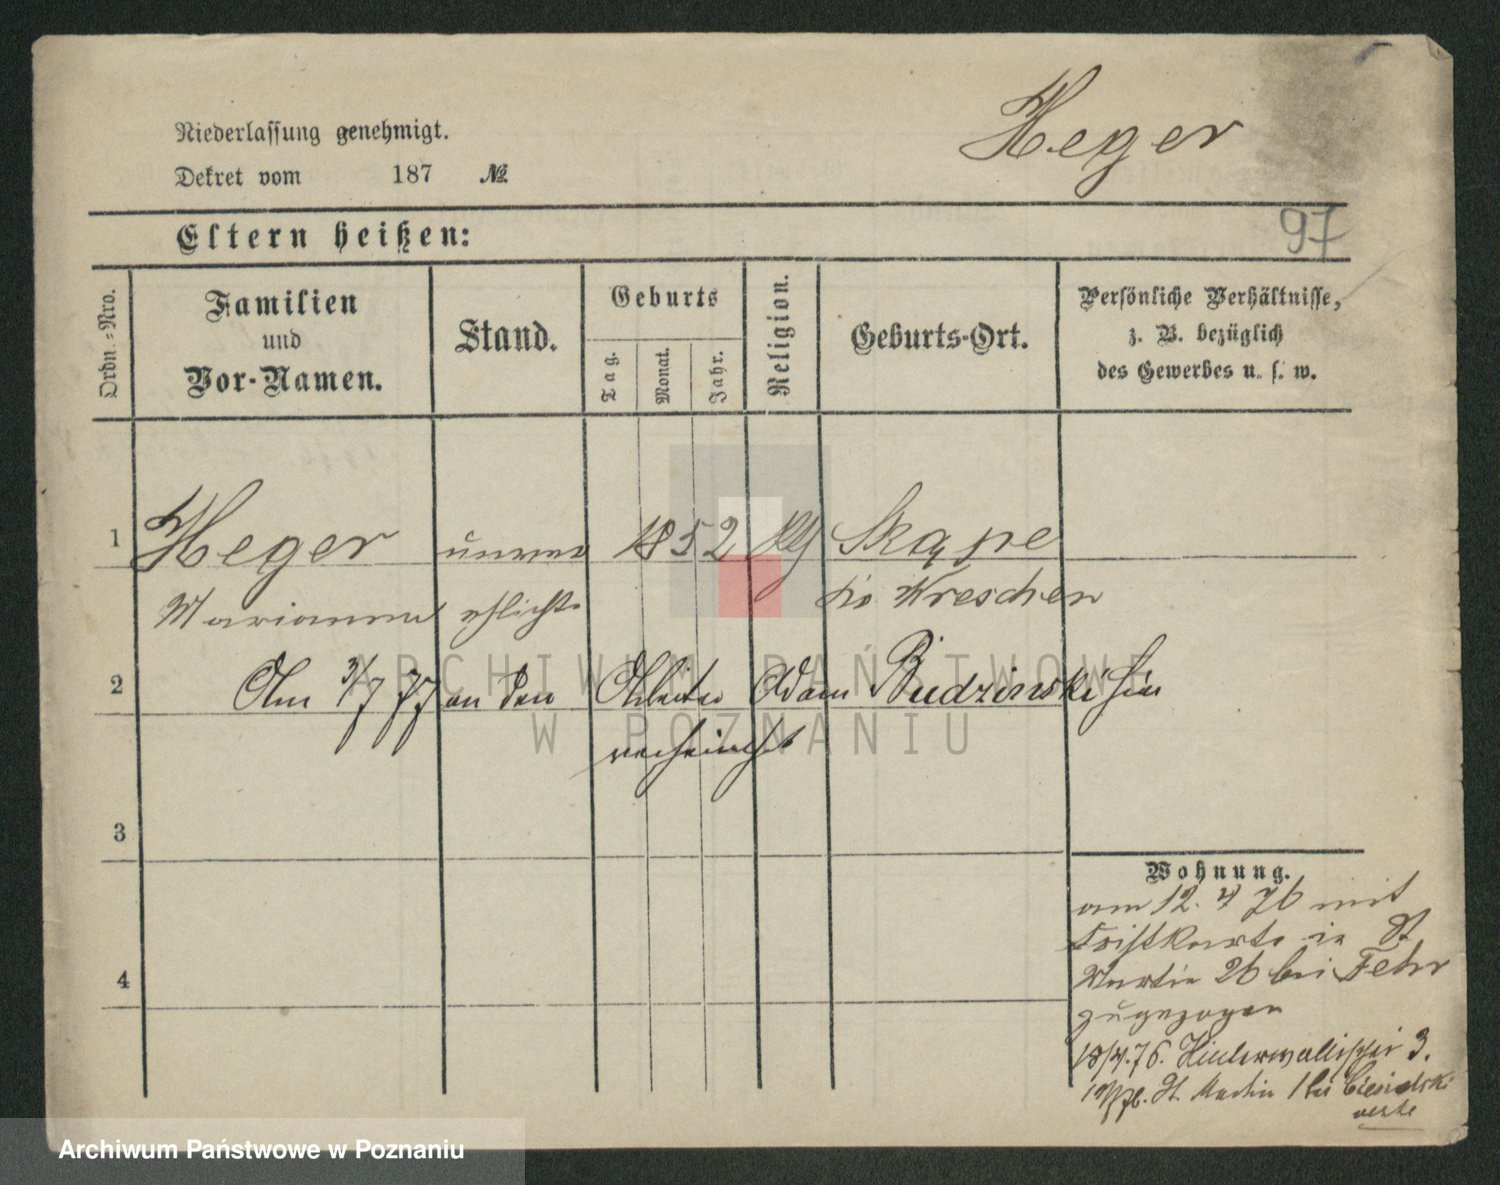 Heger
Niederlassung genehmigt.
Dekret vom 187 №
97
Eltern heißen:
Ordn.-Nro.
Familien
und
Vor-Namen.
Stand.
Geburts
Tag.
Monat.
Jahr.
Religion.
Geburts-Ort.
Persönliche Verhältnisse,
z. B. bezüglich
des Gewerbes u. s. w.
1 Heger unver 1852 Skąpe
Marianna ehlicht Kr. Wreschen
2 Am 3/7 77 an den Arbeiter Adam Budzinski hier
verheirathet
3
4
Wohnung.
am 12. 4 76 mit
Fristkarte in St
Martin 26 bei Fehr
zugezogen
18/4.76. Hinterwallischei 3.
St. Martin 1 bei
ARCHIWUM PAŃSTWOWE
W POZNANIU
Archiwum Państwowe w Poznaniu